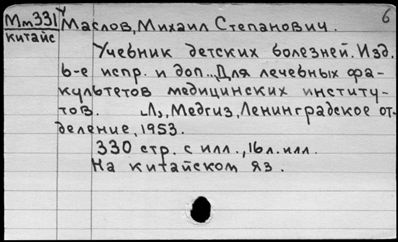 6
Мм331 Маслов, Михаил Степанович.
китайс
Учебник детских болезней. Изд.
6-е испр. и доп.. Для лечебных фа-
культетов медицинских институ-
тов. Л., Медгиз, Ленинградское от-
деление, 1953.
330 стр. с илл., 16 л. илл.
На китайском яз.